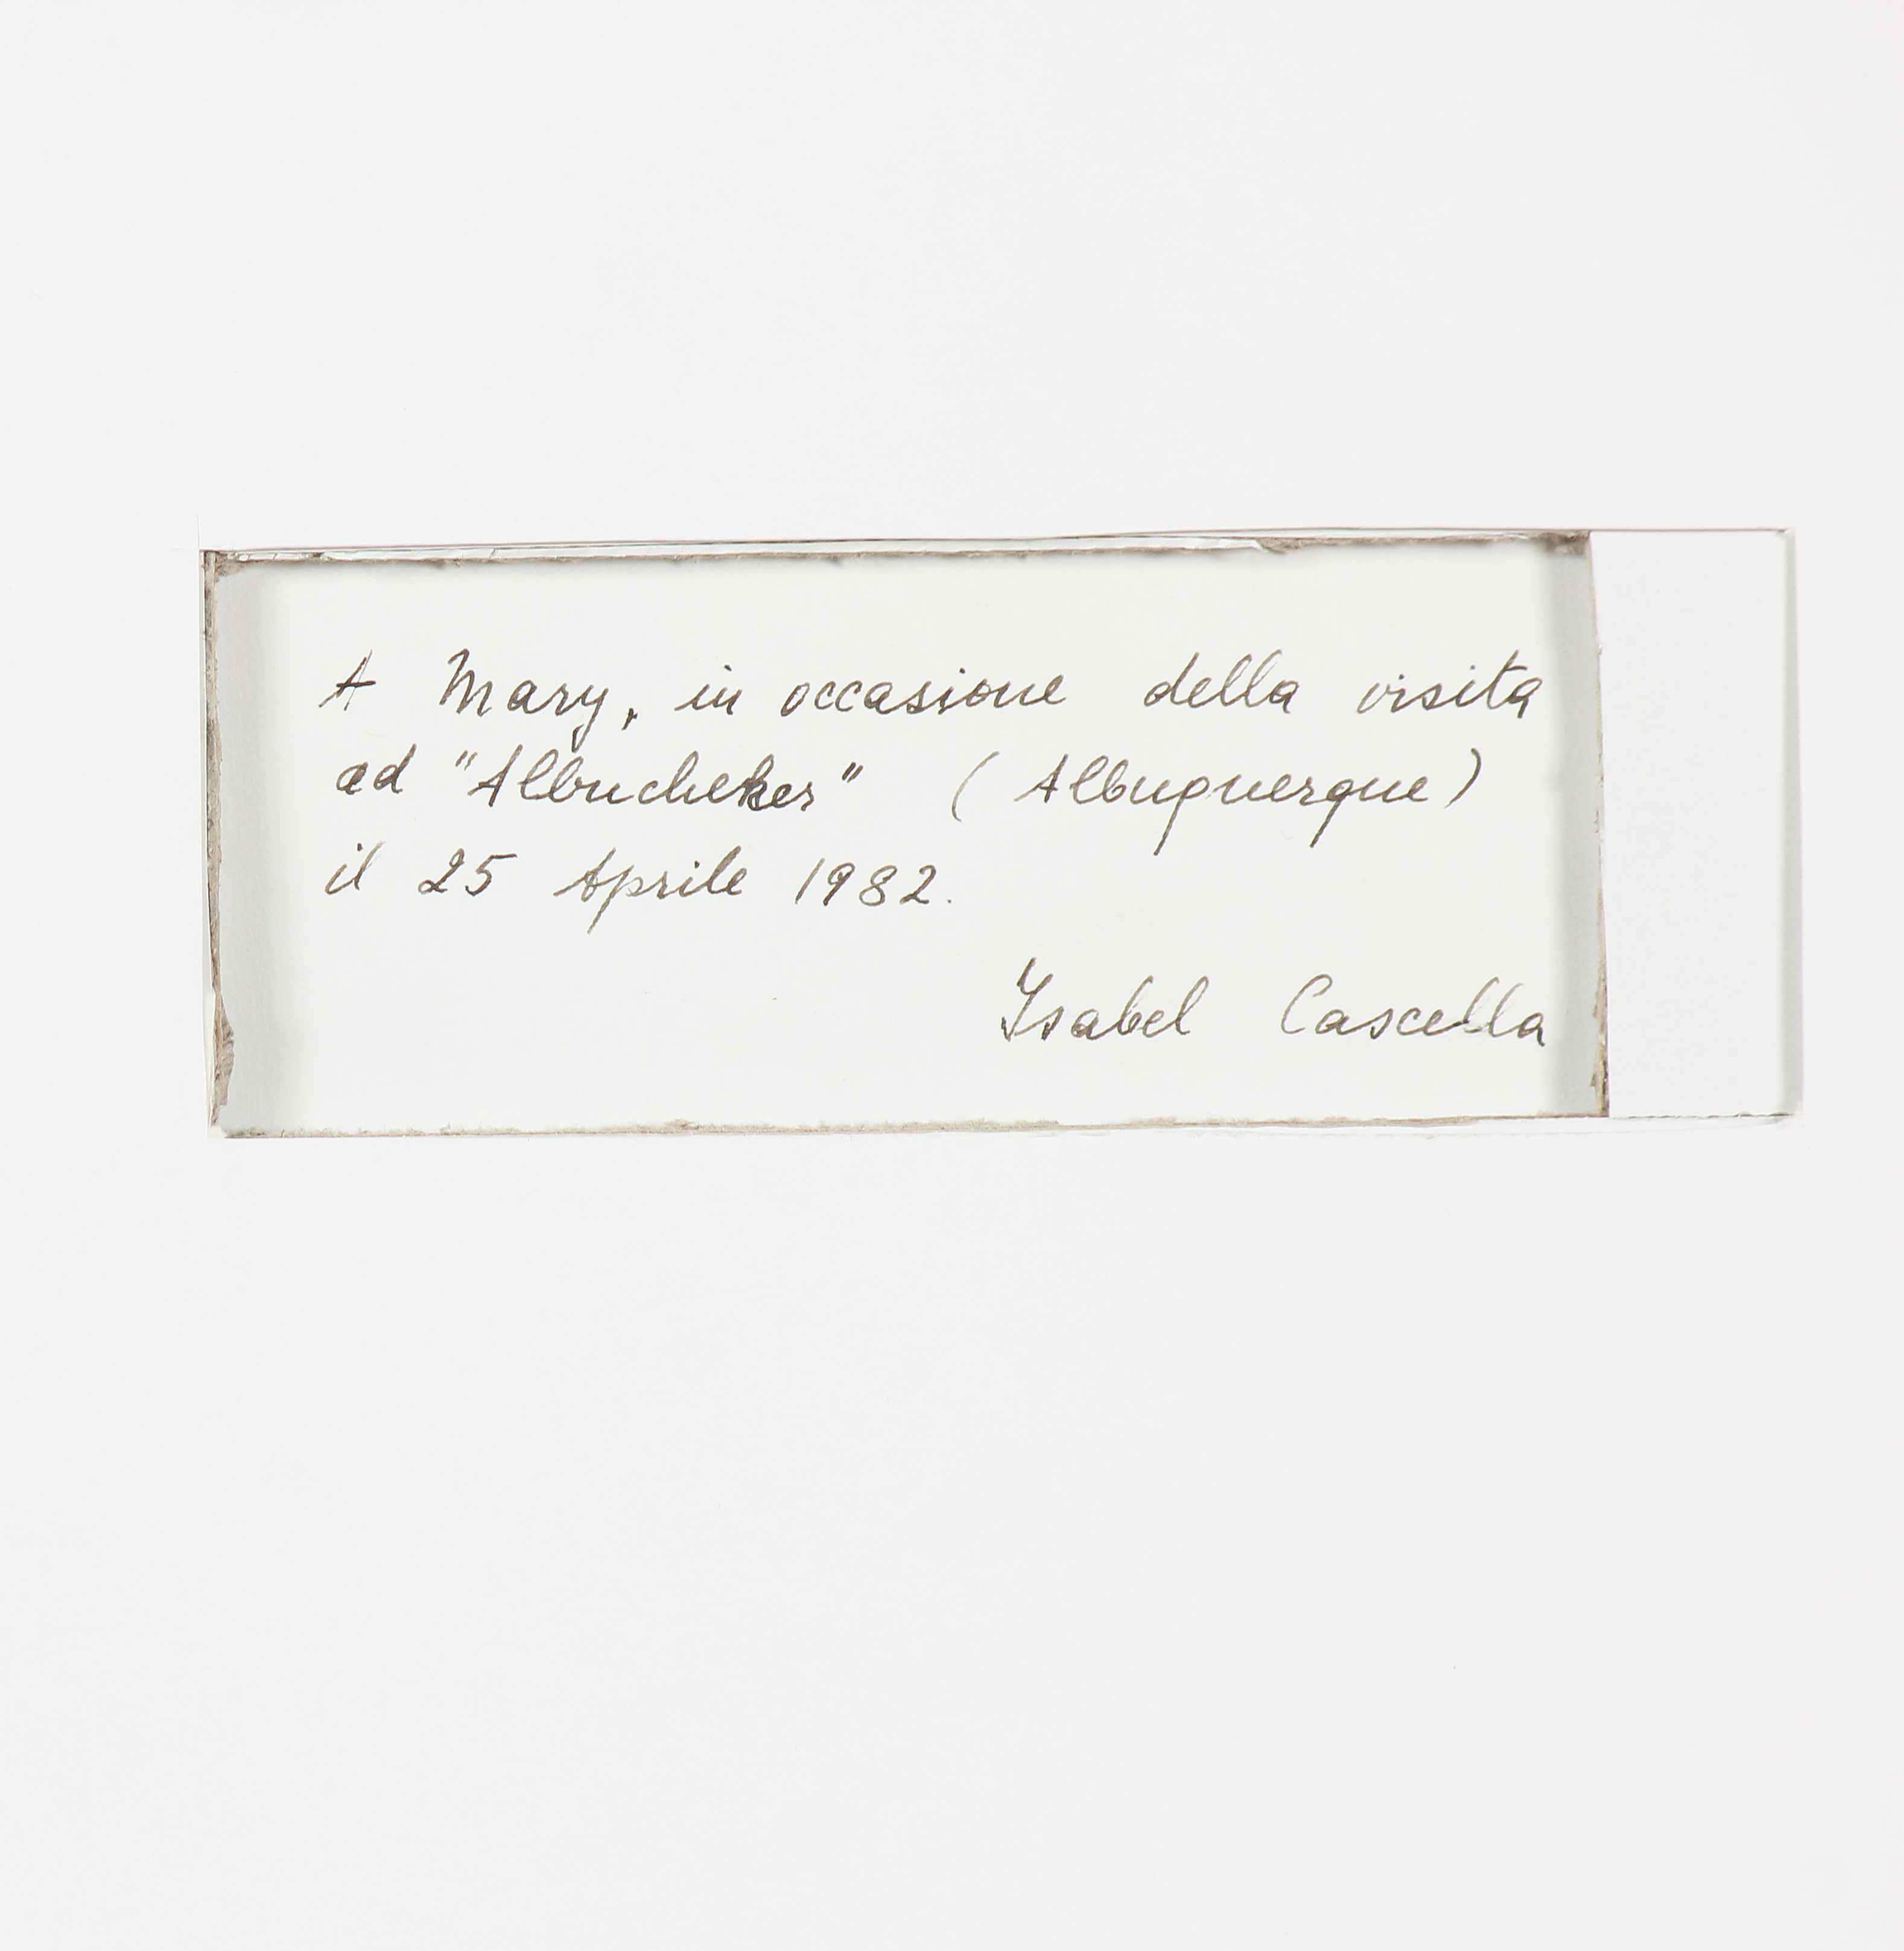 A Mary, in occasione della visita
ad "Albucheker" (Albuquerque)
il 25 Aprile 1982.
Ysabel Cascella